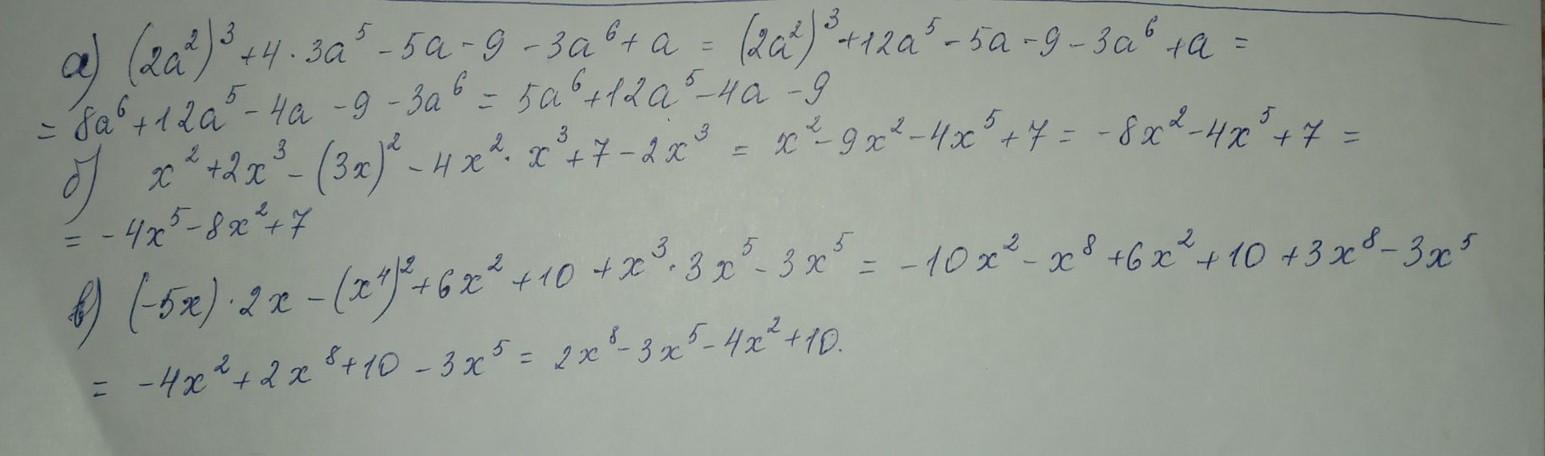 а) (2a²)³ + 4 · 3a⁵ - 5a - 9 - 3a⁶ + a = (2a²)³ + 12a⁵ - 5a - 9 - 3a⁶ + a =
= 8a⁶ + 12a⁵ - 4a - 9 - 3a⁶ = 5a⁶ + 12a⁵ - 4a - 9
б) x² + 2x³ - (3x)² - 4x² · x³ + 7 - 2x³ = x² - 9x² - 4x⁵ + 7 = -8x² - 4x⁵ + 7 =
= -4x⁵ - 8x² + 7
в) (-5x) · 2x - (x⁴)² + 6x² + 10 + x³ · 3x⁵ - 3x⁵ = -10x² - x⁸ + 6x² + 10 + 3x⁸ - 3x⁵
= -4x² + 2x⁸ + 10 - 3x⁵ = 2x⁸ - 3x⁵ - 4x² + 10.